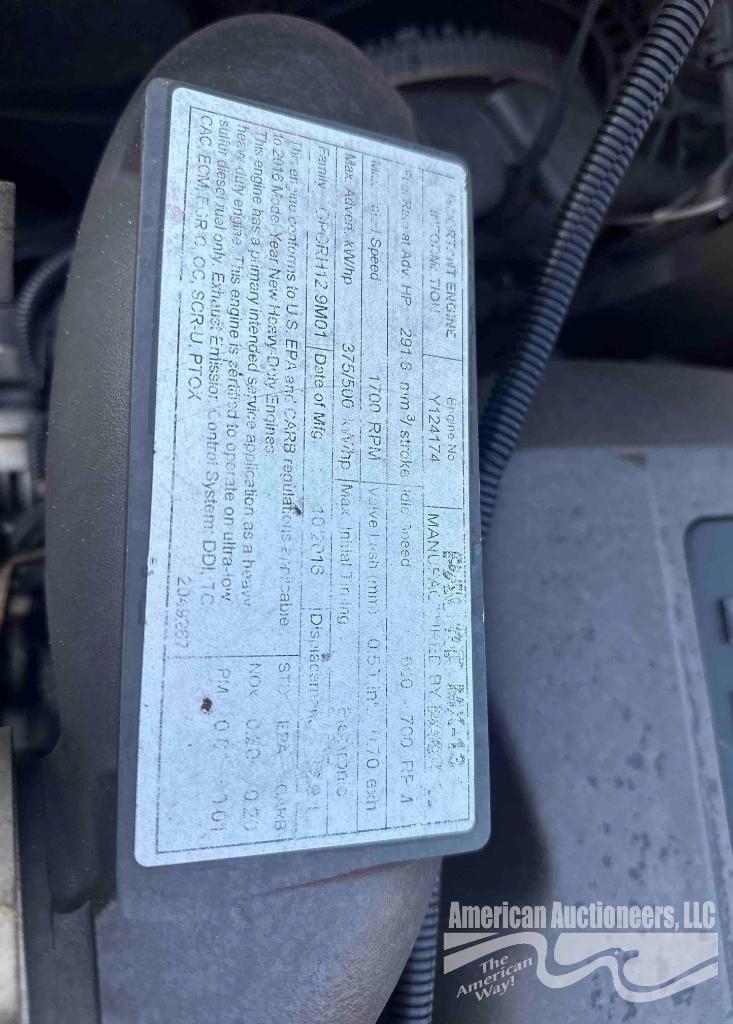 ENGINE
Engine No
Y124174
MANUFACTURED BY PACCAR
Fuel Rate at Adv HP 291.8 mm³/stroke Idle Speed 600 700 RPM
Speed 1700 RPM Valve Lash (mm) exh
Max Adver. kW/hp 375/500 kW/hp Max Initial Timing
Family 12.9M01 Date of Mfg 10/2016 Displacement
This engine conforms to U.S. EPA and CARB regulations applicable
to 2016 Model Year New Heavy-Duty Engines
This engine has a primary intended service application as a heavy
heavy-duty engine. This engine is certified to operate on ultra-low
sulfur diesel fuel only. Exhaust Emission Control System: DDI, TC,
CAC, ECM, EGR-C, OC, SCR-U, PTOX
STD EPA CARB
NOX 0.20 0.20
PM 0.01
2049287
American Auctioneers, LLC
The
American
Way!